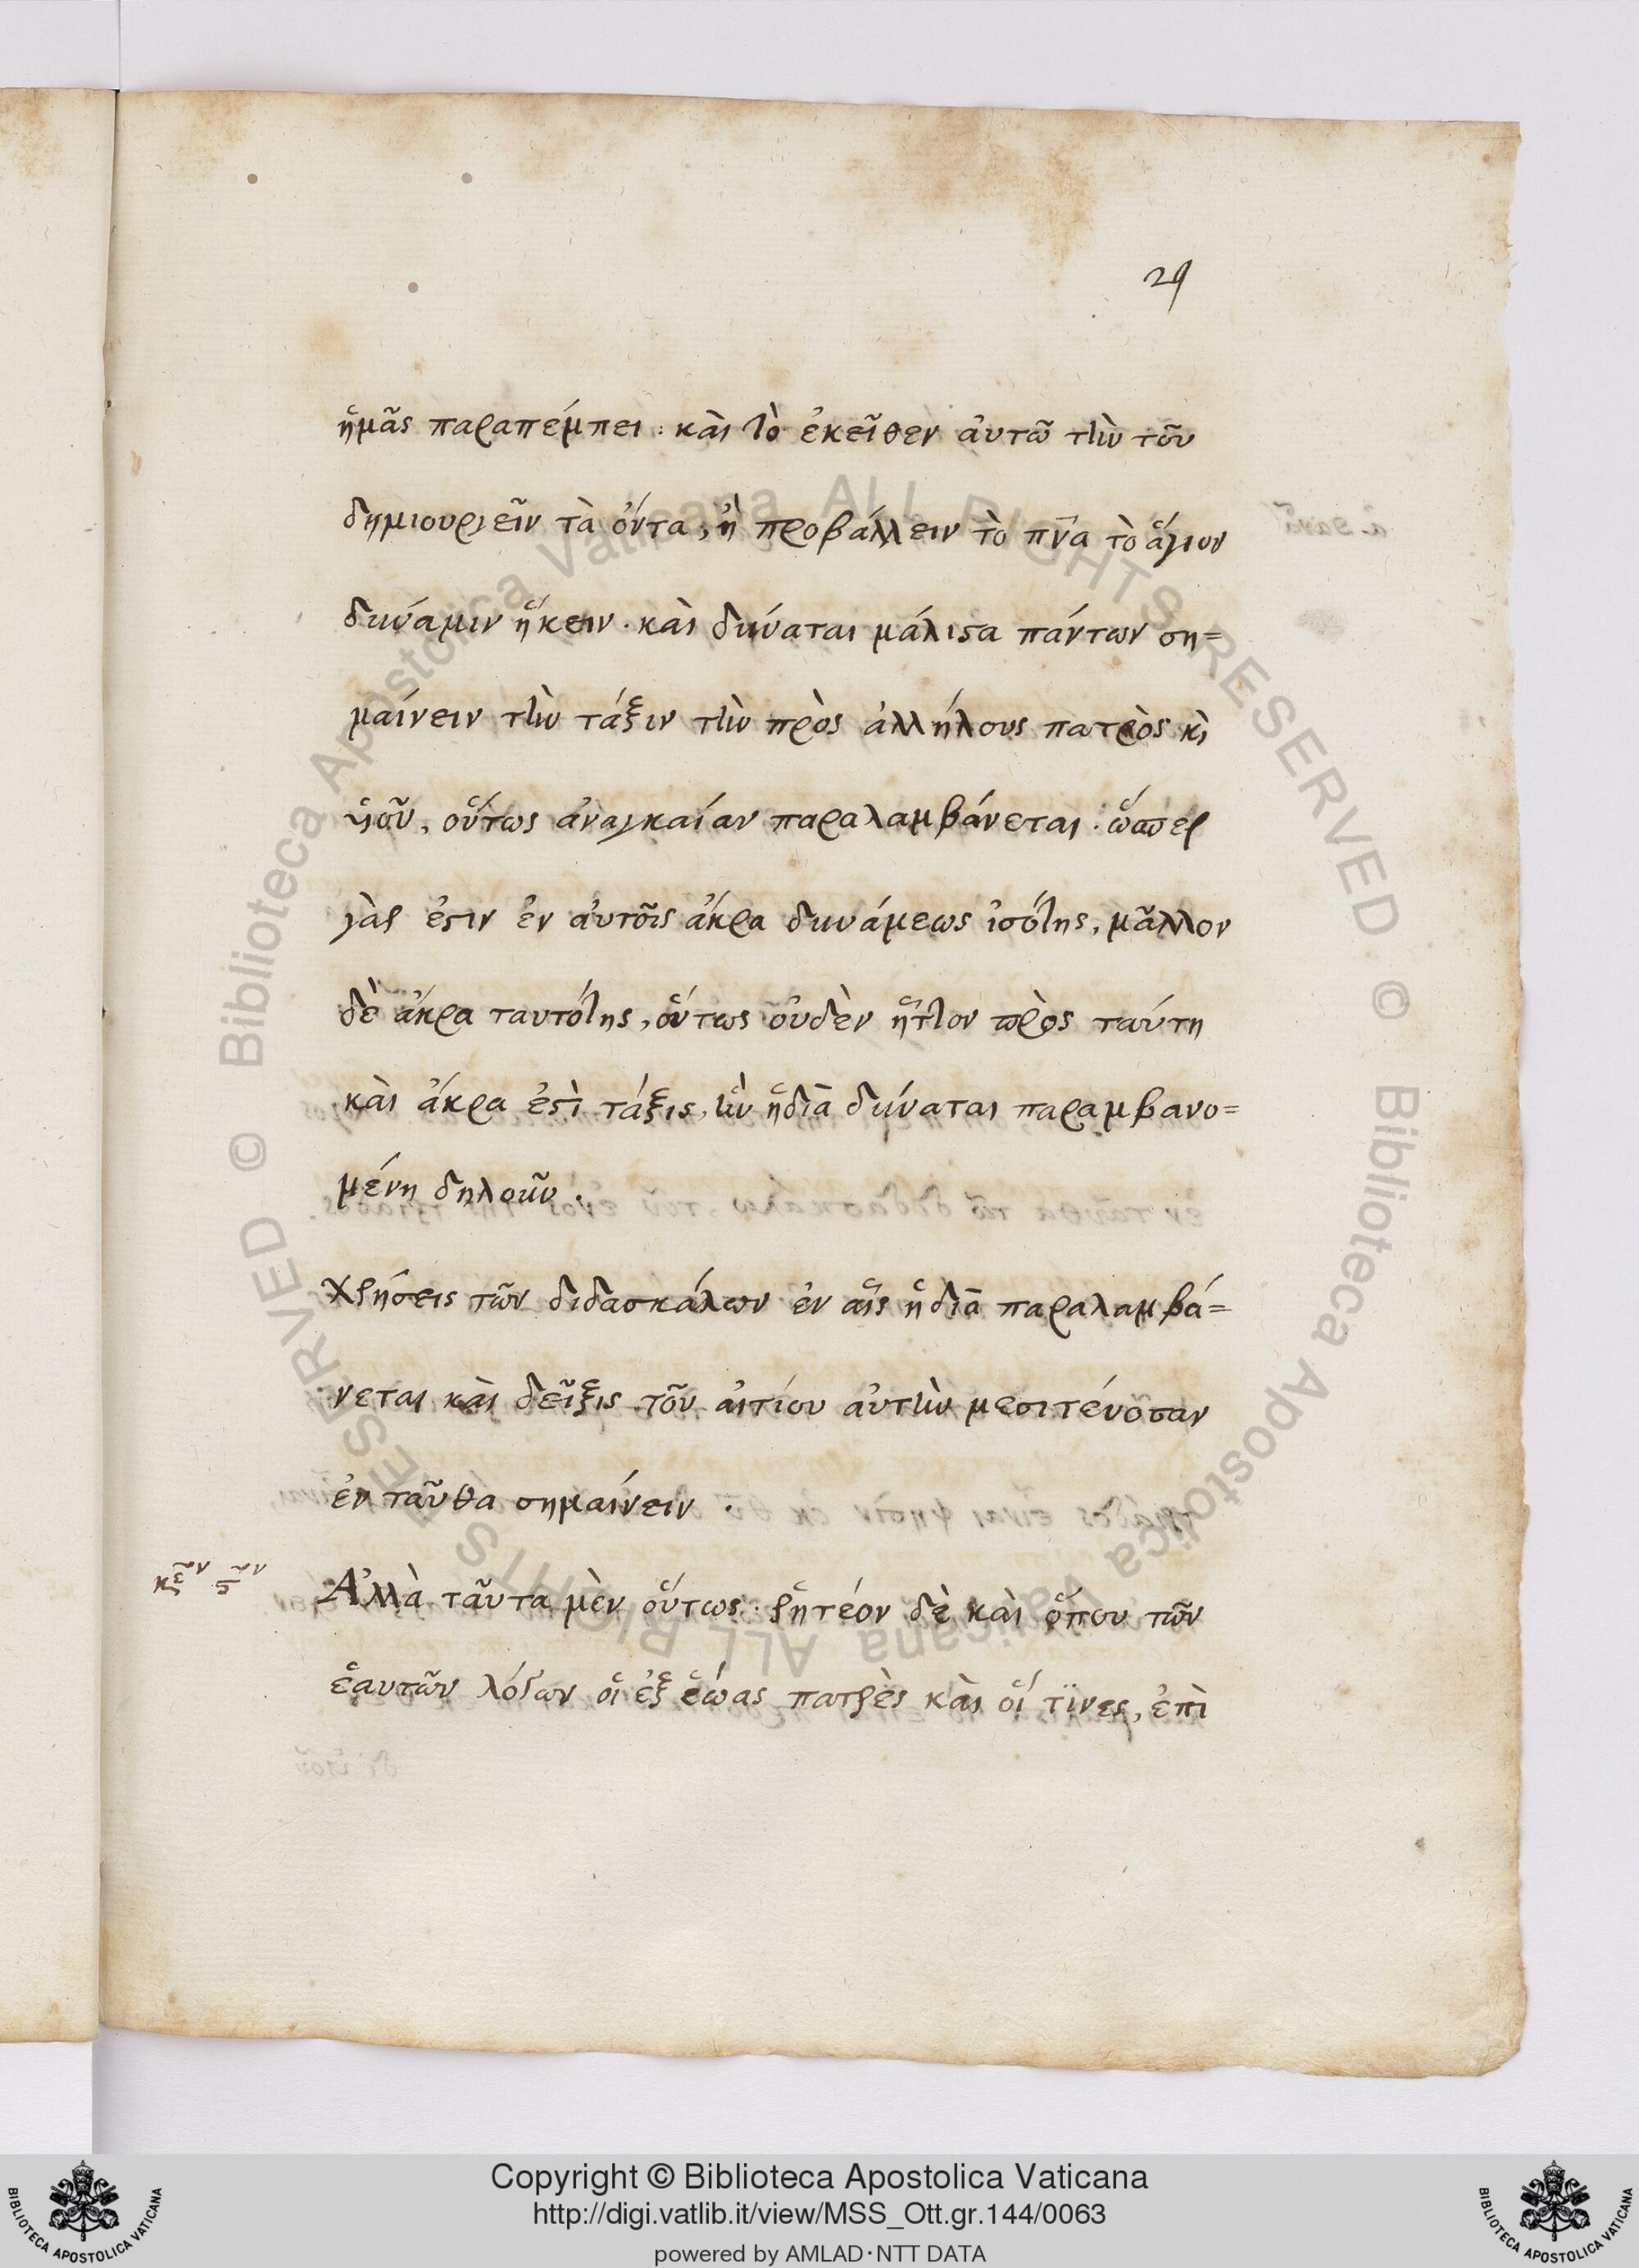 29
ἡμᾶς παραπέμπει· καὶ τὸ ἐκεῖθεν ἀυτῶ τὴν τοῦ
δημιουργεῖν τὰ ὄντα, ἢ προβάλλειν τὸ πνα τὸ ἅγιον
δύναμιν ἥκειν. καὶ δύναται μάλιϛα πάντων ση=
μαίνειν τὴν τάξιν τὴν πρὸς ἀλλήλους πατρὸς κὶ
ὑιοῦ, οὕτως ἀναγκαίαν παραλαμβάνεται. ὥσπερ
γὰρ ἐϛιν ἐν ἀυτοῖς ἄκρα δυνάμεως ἰσότης, μᾶλλον
δὲ ἄκρα ταυτότης, ὅυτως οὐδὲν ἧττον πρὸς ταύτη
καὶ ἄκρα ἐϛὶ τάξις, ἣν ἡ διὰ δύναται παραμβανο=
μένη δηλοῦν.
Χρήσεις τῶν διδασκάλων ἐν αἷς ἡ διὰ παραλαμβά=
νεται καὶ δεῖξις τοῦ αἰτίου ἀυτὴν μεσιτέυουσαν
ἐν ταῦθα σημαίνειν.
Ἀλλὰ ταῦτα μὲν οὕτως· ῥητέον δὲ καὶ ὅπου τῶν
ἑαυτῶν λόγων οἱ ἐξ ἑώας πατρὲς καὶ οἵ τϊνες, ἐπὶ
Copyright © Biblioteca Apostolica Vaticana
http://digi.vatlib.it/view/MSS_Ott.gr.144/0063
powered by AMLAD·NTT DATA
BIBLIOTECA APOSTOLICA VATICANA
BIBLIOTECA APOSTOLICA VATICANA
© Biblioteca Apostolica Vaticana ALL RIGHTS RESERVED © Biblioteca Apostolica Vaticana ALL RIGHTS RESERVED